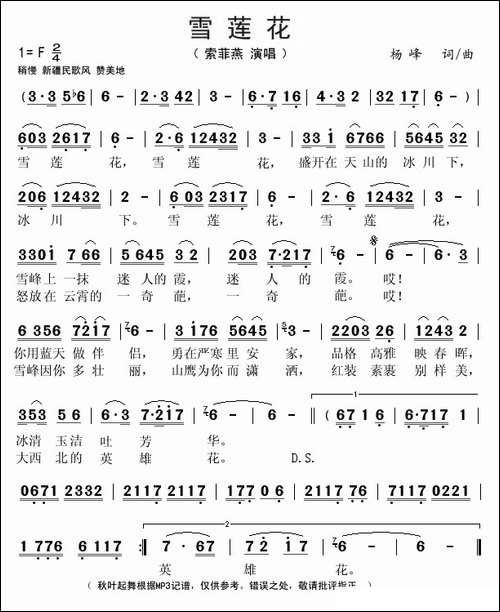 雪莲花
1=F 2/4 （索菲燕 演唱） 杨峰 词/曲
稍慢 新疆民歌风 赞美地
(3·3 5♭6 | 6 - | 2·3 42 | 3 - | 6·7 2176 | 3·4 32 | 32 17 | 6 - )|
603 2617 | 6 - | 2·6 12432 | 3 - | 33 1 6766 | 5645 32 |
雪 莲 花， 雪 莲 花， 盛开在 天山的 冰 川 下，
206 12432 | 2 - | 6 03 2317 | 6 - | 2·6 12432 | 6 - |
冰 川 下。 雪 莲 花， 雪 莲 花，
3301 7 66 | 5 645 32 | 203 7·217 | 6 - | 6 - | 6·3 |
雪峰上一抹 迷 人的霞， 迷 人 的 霞。 哎！
怒放在云霄的 一 奇 葩， 一 奇 葩。 哎！
6 356 7217 | 6 - | 3·1 7176 5645 | 3 - | 2203 26 | 1243 2 |
你用蓝天 做伴 侣， 勇在严寒里 安 家， 品格 高雅 映春晖，
雪峰因你 多壮 丽， 山鹰为你而 潇 洒， 红装 素裹 别样美，
353 5 6 | 6·3 7·217 | 6 - | 6 - ‖ (67 1 6 | 6·717 1 |
冰清 玉洁 吐 芳 华。
大西 北的 英 雄 花。 D.S.
0671 2332 | 2117 2117 | 177 0 6 | 2117 2117 | 7117 0221 |
1 776 6 117 | 6 - ) :‖ 7 - | 6·67 | 72 17 | 6 - ‖
英 雄 花。
（ 秋叶起舞根据MP3记谱，仅供参考。错误之处，敬请批评指正。